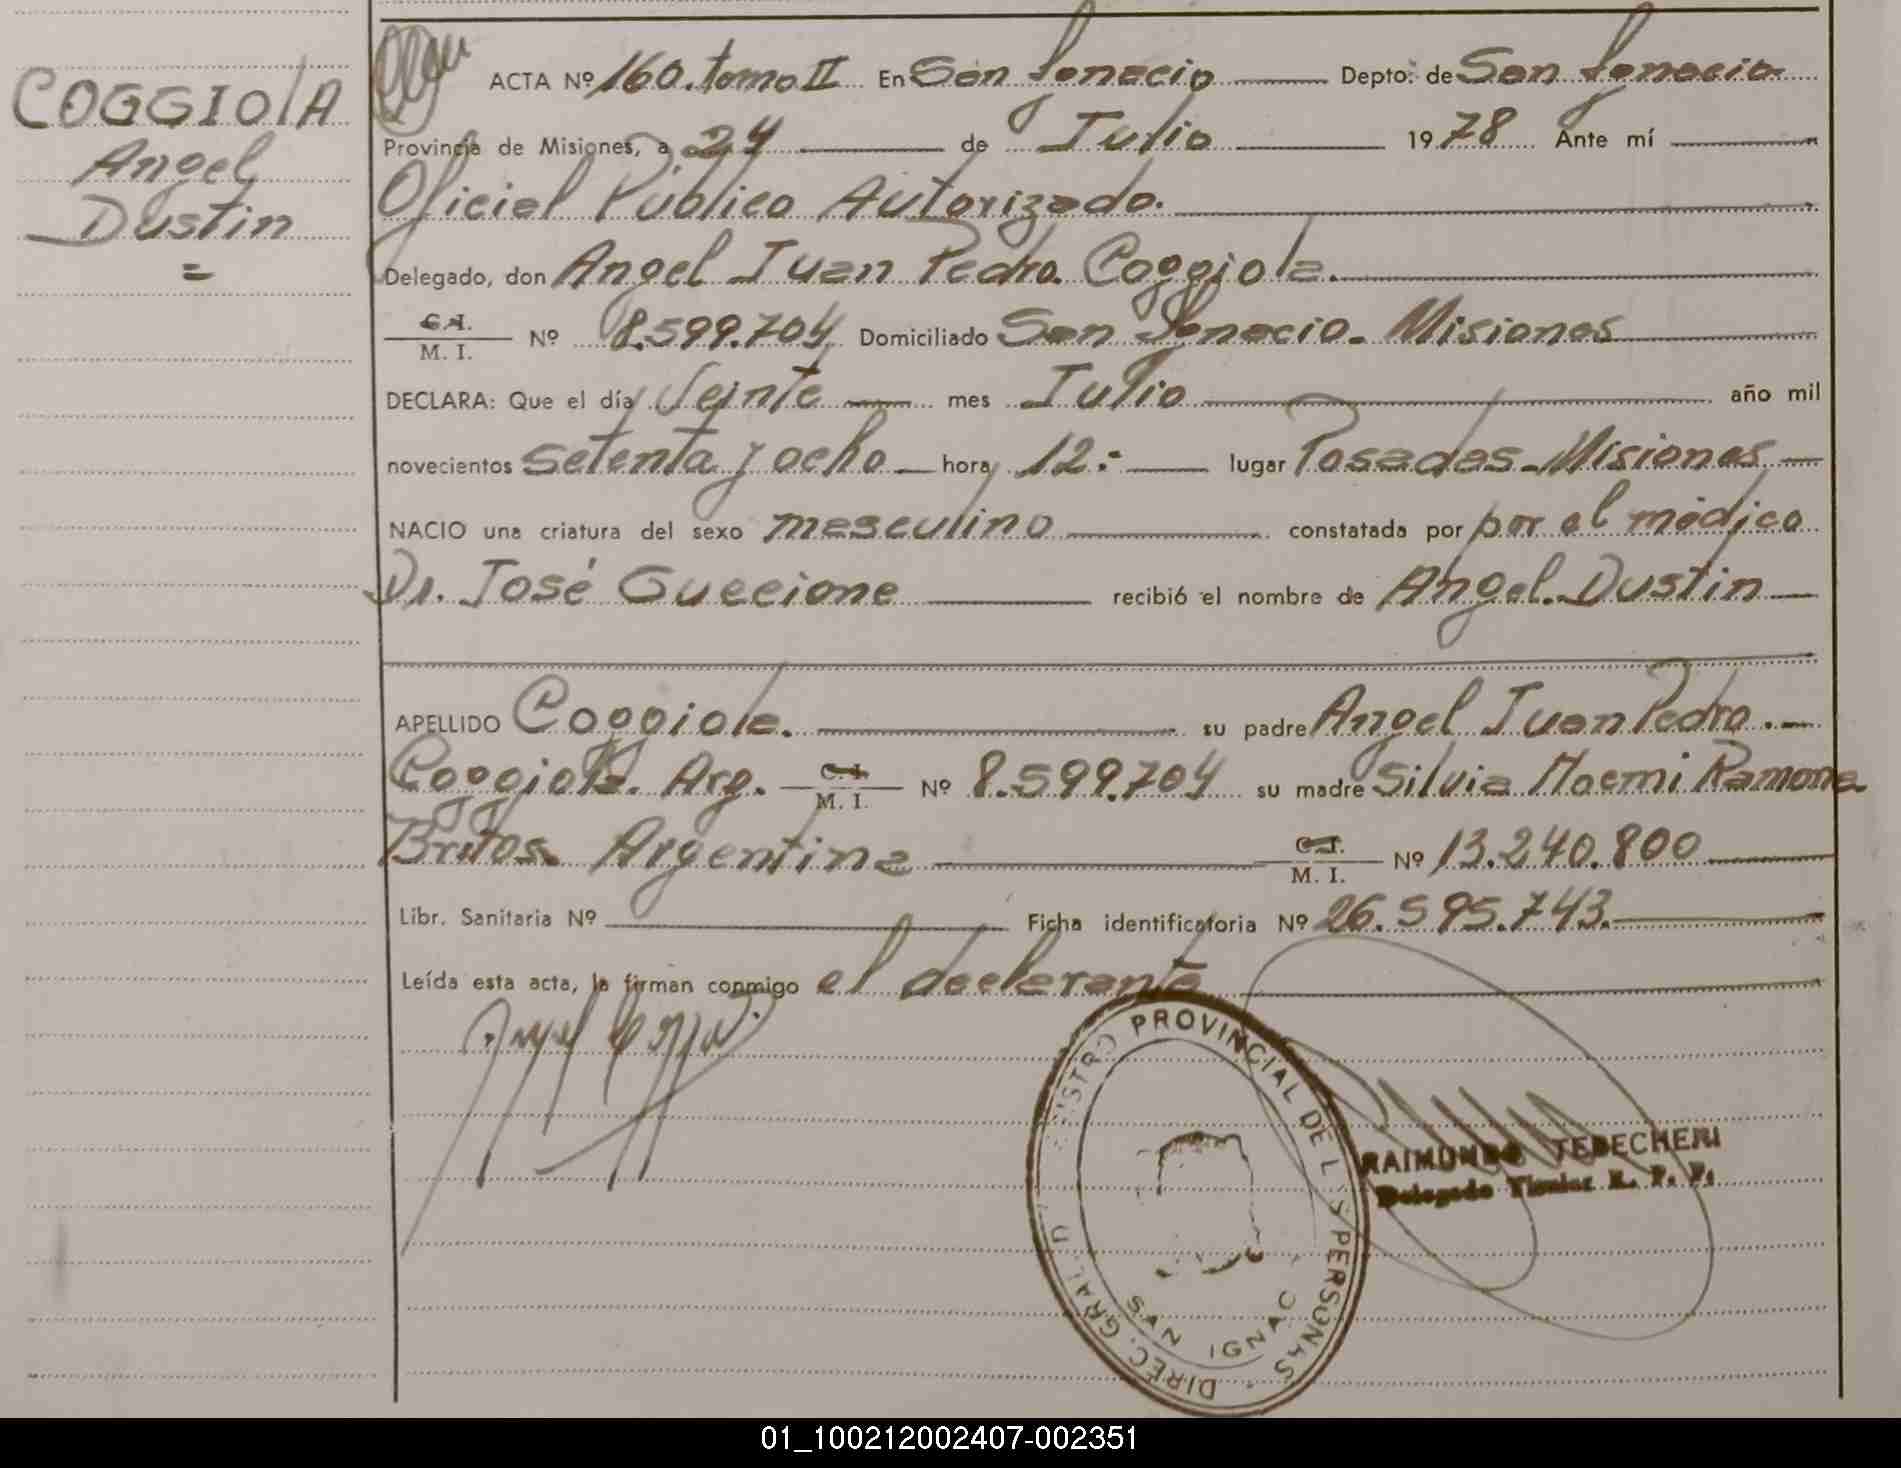 COGGIOLA
Angel
Dustin
=
ACTA Nº 160. tomo II En San Ignacio Depto. de San Ignacio
Provincia de Misiones, a 24 de Julio 1978 Ante mí
Oficial Público Autorizado.
Delegado, don Angel Juan Pedro Coggiola.
C.I.
M. I. Nº 8.599.704 Domiciliado San Ignacio. Misiones
DECLARA: Que el día Veinte mes Julio año mil
novecientos setenta y ocho hora 12:- lugar Posadas-Misiones
NACIO una criatura del sexo masculino constatada por por el médico
Dr. José Guccione recibió el nombre de Angel Dustin
APELLIDO Coggiola. su padre Angel Juan Pedro.
Coggiola. Arg. C.I. M. I. Nº 8.599.704 su madre Silvia Noemi Ramona
Britos. Argentina C.I. M. I. Nº 13.240.800
Libr. Sanitaria Nº Ficha identificatoria Nº 26.595.743.
Leída esta acta, la firman conmigo el declarante
PROVINCIAL DE L S PERSONAS
DIREC. GRAL D
SAN IGNAC
RAIMUNDO TEDECHERI
Delegado Titular R. P. P.
01_100212002407-002351